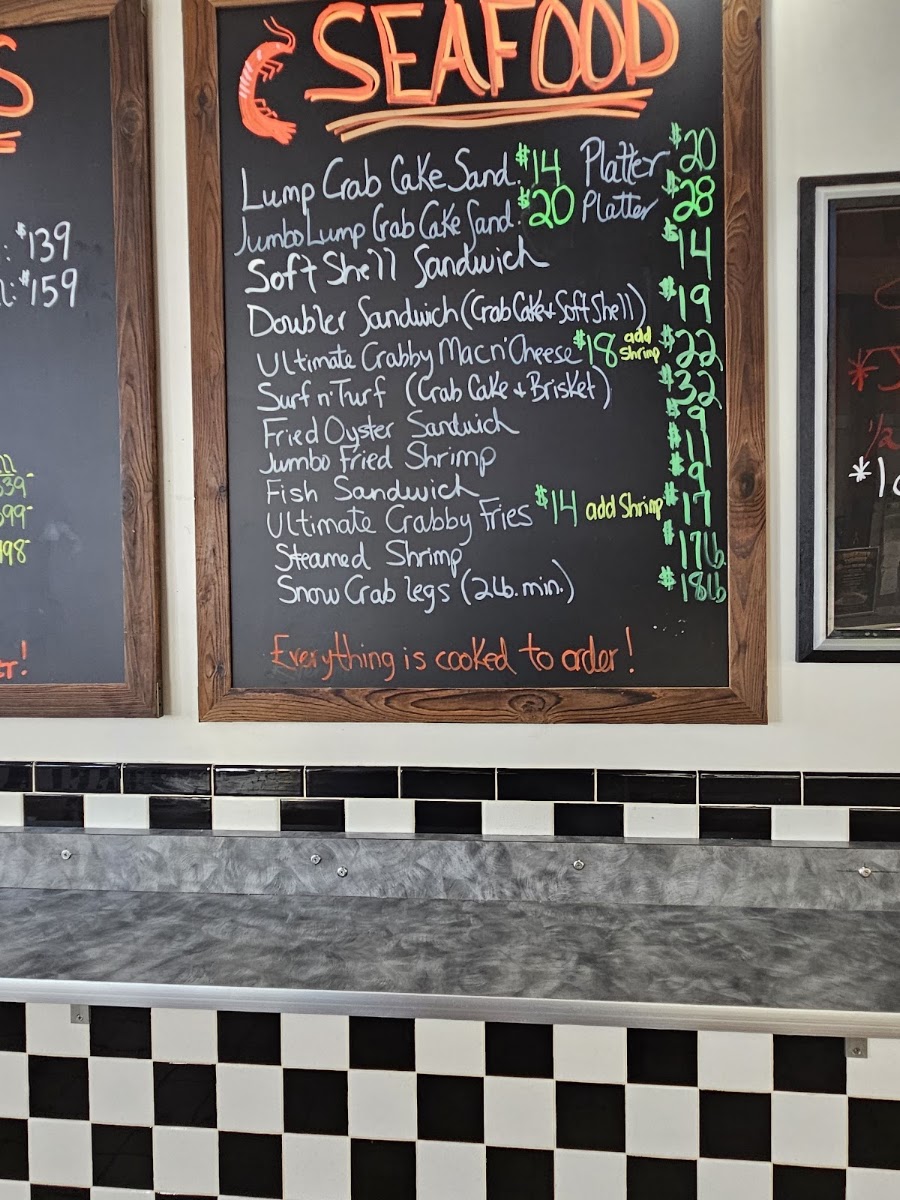 S
: $139
: $159
$39-
$99-
$98-
!
SEAFOOD
Lump Crab Cake Sand. $14 Platter $20
Jumbo Lump Crab Cake Sand. $20 Platter $28
Soft Shell Sandwich $14
Doubler Sandwich (Crab Cake + Soft Shell) $19
Ultimate Crabby Mac n' Cheese $18 add Shrimp $22
Surf n' Turf (Crab Cake + Brisket) $32
Fried Oyster Sandwich $9
Jumbo Fried Shrimp $11
Fish Sandwich $9
Ultimate Crabby Fries $14 add Shrimp $17
Steamed Shrimp $17lb.
Snow Crab legs (2lb. min.) $18lb
Everything is cooked to order!